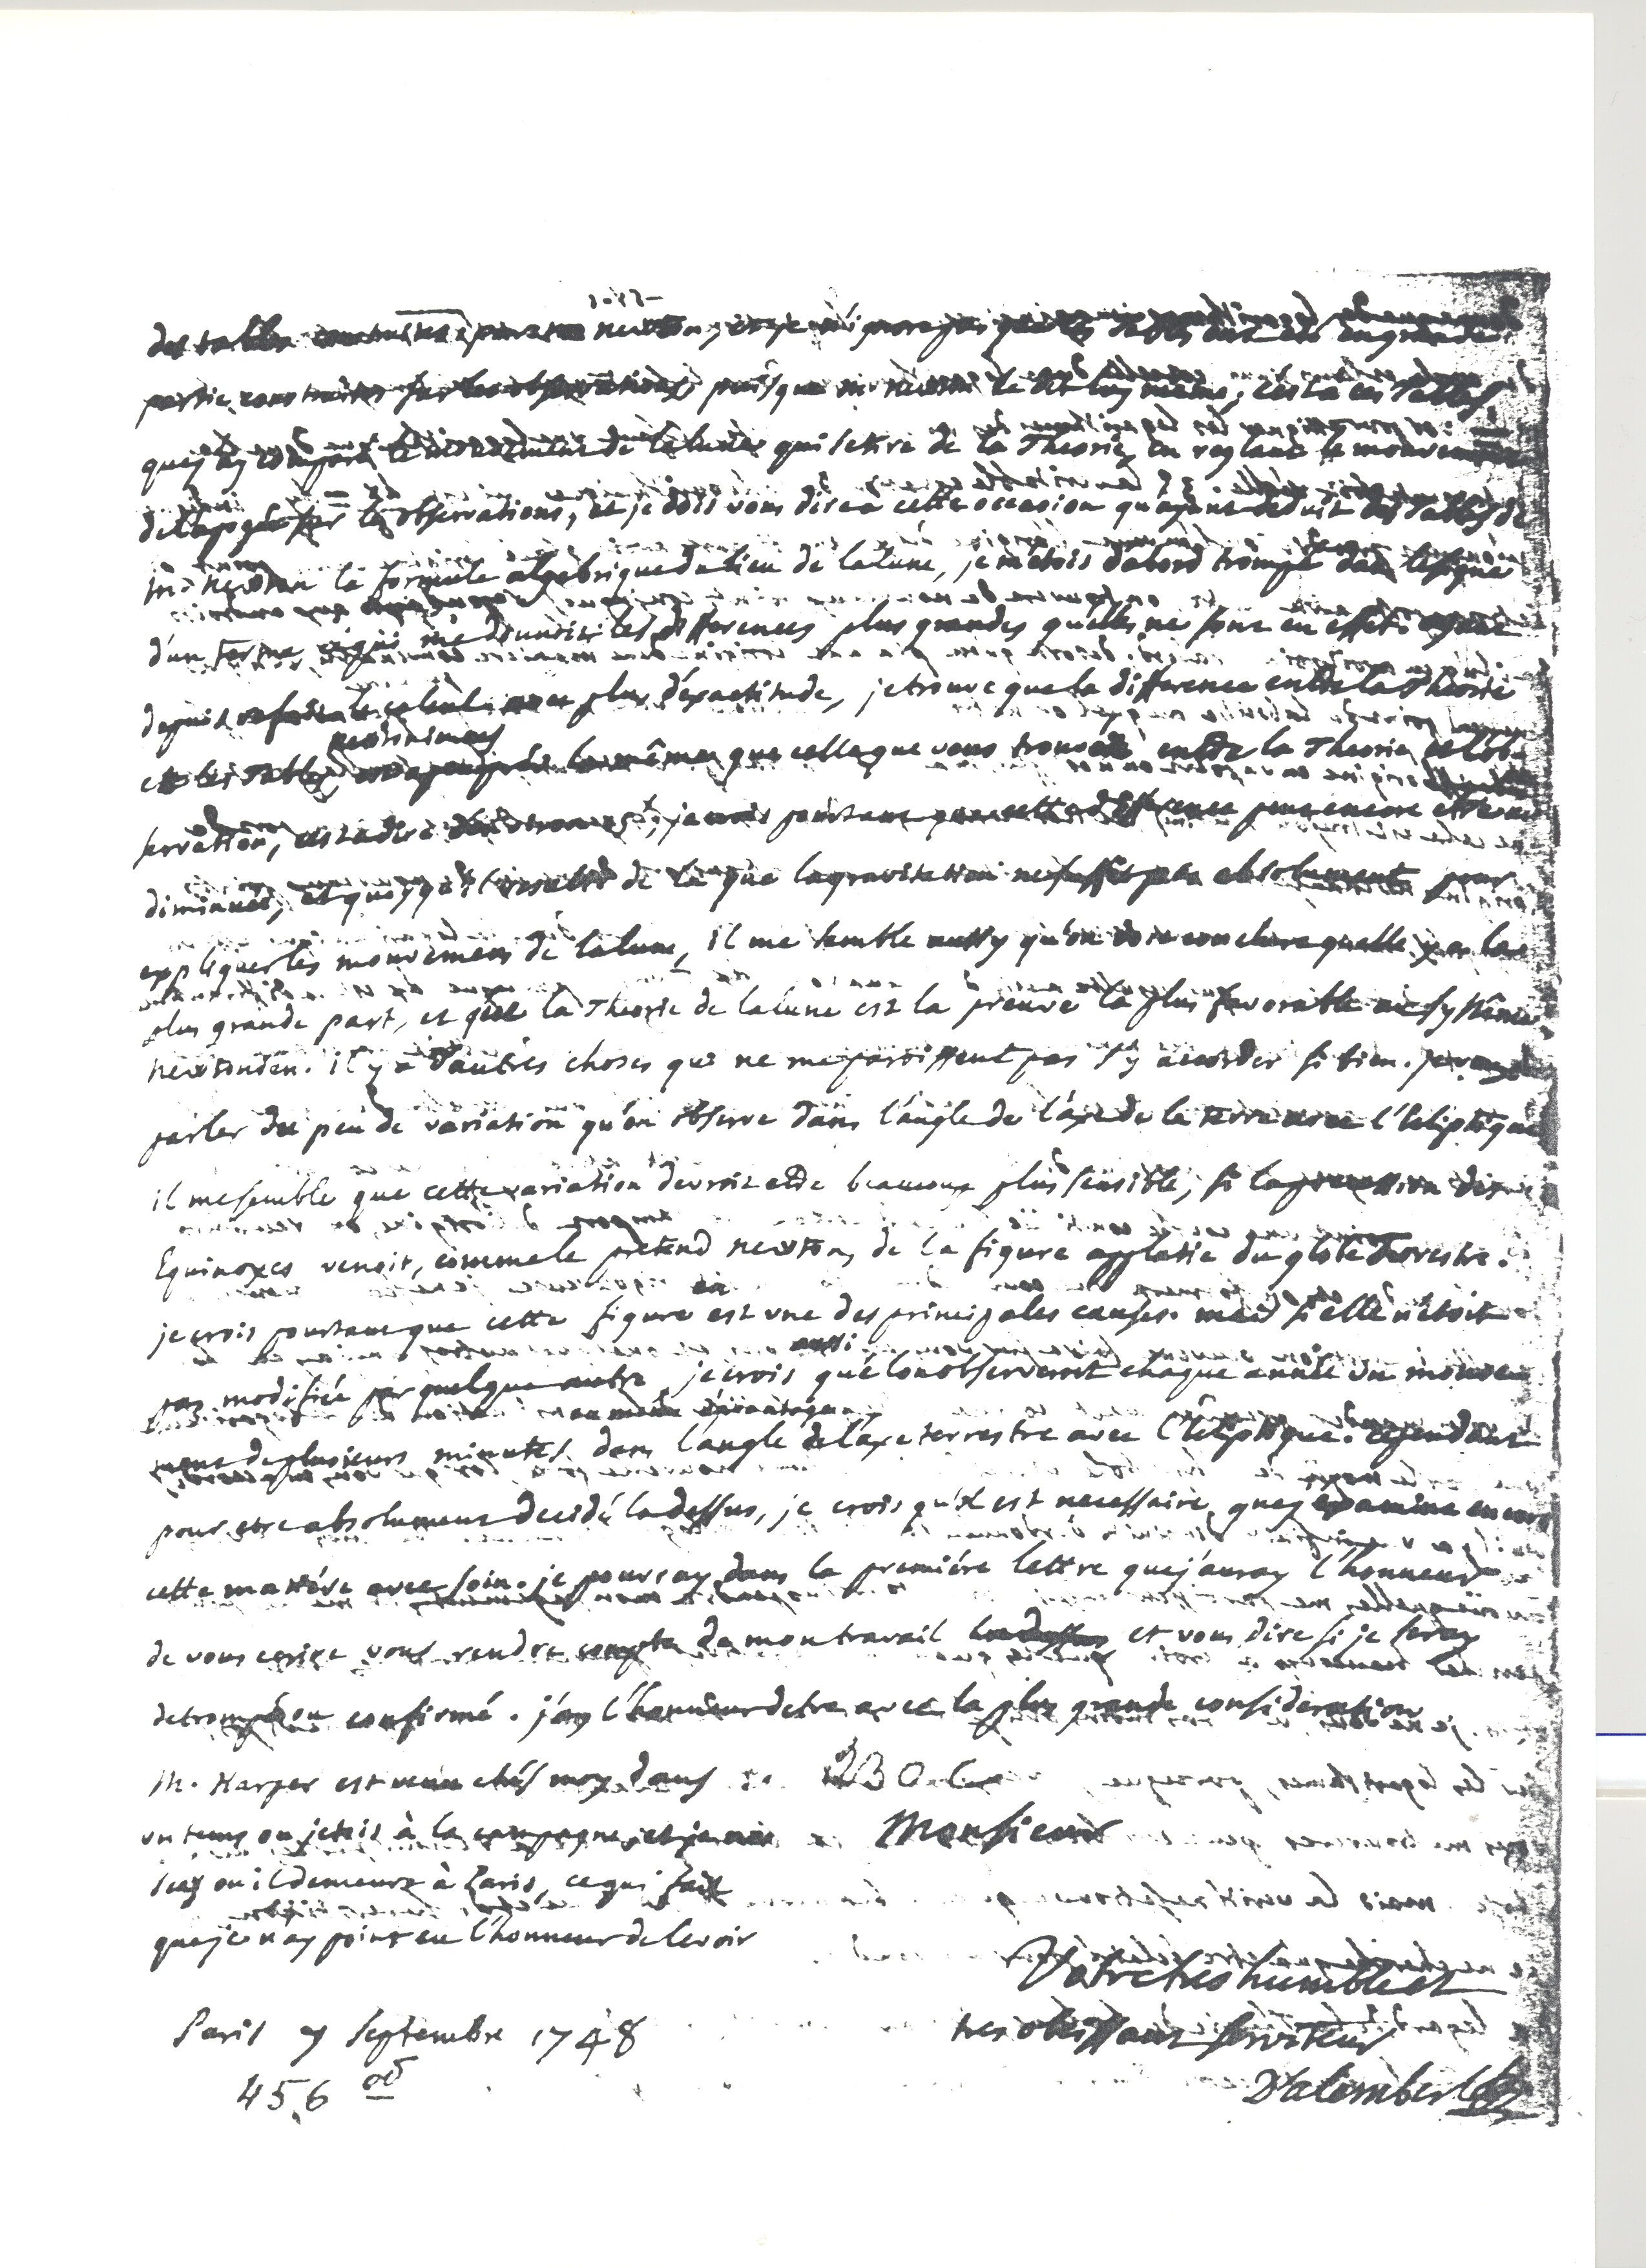 des tables construites par m. newton, et je n'ignore pas que ces Tables ont été en grande
partie construites sur les observations puisque m. newton le dit luy même; c'est à ces Tables
que j'ay comparé le mouvement de la lune qui se tire de la Theorie, en reglant le mouvement
de l'apogée sur les observations, et je dois vous dire a cette occasion qu'ayant deduit des Tables de
m. newton la formule algebrique du lieu de la lune, je m'etois d'abord trompé dans le signe
d'un terme, ce qui me donnoit les differences plus grandes qu'elles ne sont en effet. ayant
depuis refait le calcul avec plus d'exactitude, je trouve que la difference entre la Theorie
et les Tables newtoniennes est a peu près la même que celle que vous trouvez entre la Theorie et l'ob-
servation, c'est a dire je crois pourtant que cette difference peut encore etre
diminuée, et quoyqu'il resulte de là que la gravitation ne suffit pas absolument pour
expliquer les mouvemens de la lune, il me semble aussy qu'on doit conclure qu'elle y a la
plus grande part, et que la Theorie de la lune est la preuve la plus favorable au systême
newtonien. il y a d'autres choses qui ne me paroissent pas s'y accorder si bien. je veux
parler du peu de variation qu'on observe dans l'angle de l'axe de la terre avec l'Ecliptique
il me semble que cette variation devroit etre beaucoup plus sensible, si la precession des
Equinoxes venoit, comme le pretend newton, de la figure applatie du globe Terrestre.
je crois pourtant que cette figure en est une des principales causes. mais si elle n'etoit
pas modifiée par quelque autre, je crois aussi que l'on observeroit chaque année un mouve-
ment de plusieurs minutes dans l'angle de l'axe terrestre avec l'Ecliptique. cependant
pour etre absolument decidé la dessus, je crois qu'il est necessaire que j'examine encore
cette matiére avec soin. je pourray dans la premiére lettre que j'auray l'honneur
de vous ecrire vous rendre compte de mon travail la dessus, et vous dire si je seray
detrompé ou confirmé. j'ay l'honneur d'etre avec la plus grande consideration
M. Harper est venu chés moy dans
un temps ou j'etois à la campagne, et je ne
Monsieur
sçay ou il demeure à Paris, ce qui fait
que je n'ay point eu l'honneur de le voir
Votre tres humble et
tres obeissant serviteur
Paris 7 septembre 1748
D'alembert
456